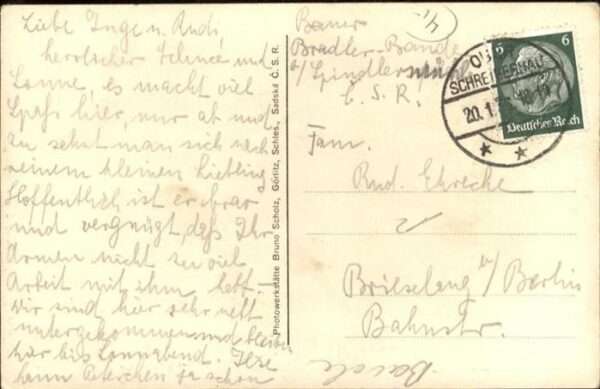 Liebe Inge u. Rudi,
herrlicher Schnee und
Sonne, es macht viel
Spaß hier, nur ab und
zu sehnt man sich nach
seinem kleinen Liebling
Hoffentlich ist er brav
und vergnügt, daß Ihr
Armen nicht so viel
Arbeit mit ihm habt.
Wir sind hier sehr nett
untergekommen und bleiben
hier bis Sonnabend. Ilse
kann Peterchen ja schon
Photowerkstätte Bruno Scholz, Görlitz, Schles., Sadská Č. S. R.
4,-
Bauer
Bradler-Baude
b/ Spindlermühle
Č. S. R.
SCHREIBERHAU
20.1.
6 6
Deutsches Reich
Fam.
Rud. Ehrecke
Brieselang b/ Berlin
Bahnstr.
Baude